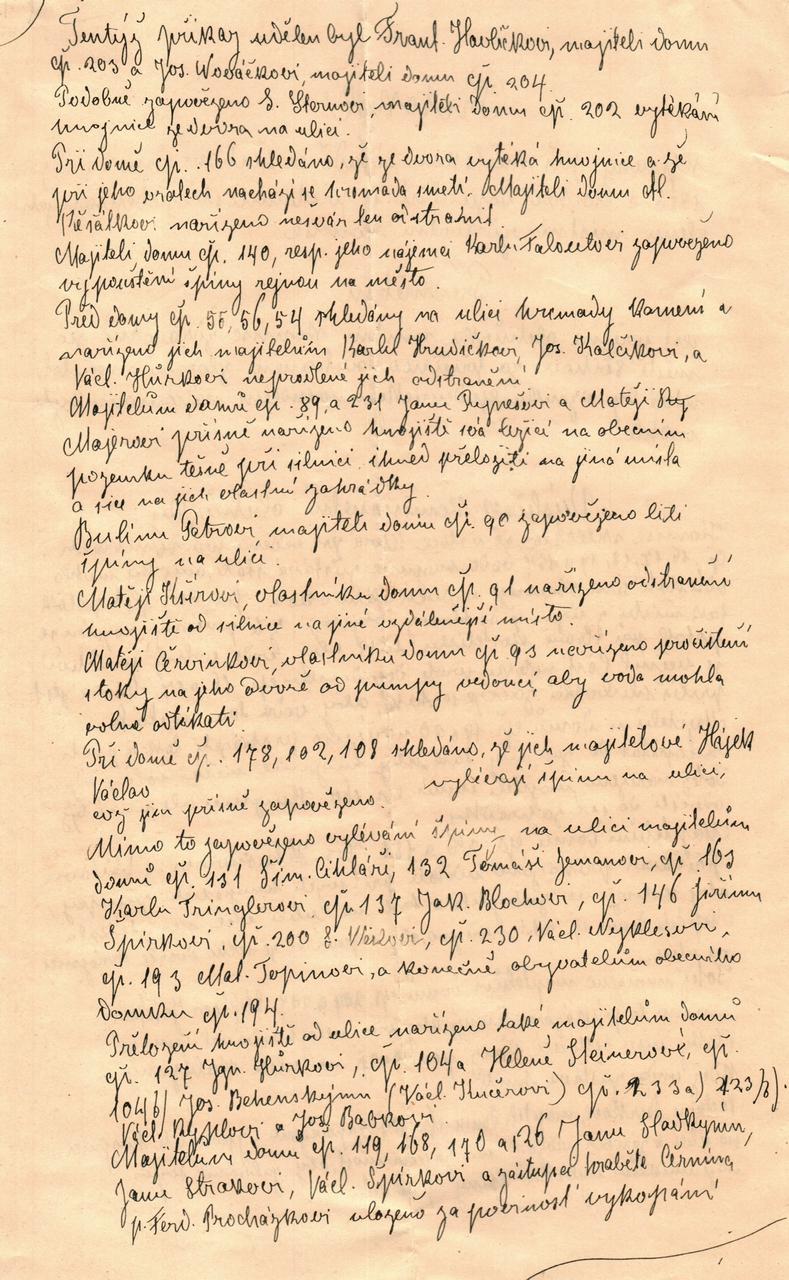 Tentýž příkaz udělen byl Frant. Havlíčkovi, majiteli domu
čp. 203 a Jos. Nováčkovi, majiteli domu čp. 204.
Podobně zapovězeno S. Sternovi, majiteli domu čp. 202 vytékání
hnojnice ze dvora na ulici.
Při domě čp. 166 shledáno, že ze dvora vytéká hnojnice a že
při jeho vratech nachází se hromada smetí. Majiteli domu M.
nařízeno nešvár ten odstranit.
Majiteli domu čp. 140, resp. jeho nájemci Karlu Faloutovi zapovězeno
vypouštění špíny rejnou na město.
Před domy čp. 55, 56, 54 shledány na ulici hromady kamení a
nařízeno jich majitelům Karlu Hrudičkovi, Jos. Kalčíkovi, a
Václ. Hůrkovi neprodlené jich odstranění.
Majitelům domů čp. 89, a 231 Janu Rynešovi a Matěji
Majerovi přísně nařízeno hnojiště svá ležící na obecním
pozemku těsně při silnici ihned přeložiti na jiná místa
a sice na jich vlastní zahrádky.
Bulínu Petrovi, majiteli domu čp. 90 zapovězeno líti
špíny na ulici.
Matěji Kšírovi, vlastníku domu čp. 91 nařízeno odstranění
hnojiště od silnice na jiné vzdálenější místo.
Matěji Červinkovi, vlastníku domu čp. 93 nařízeno pročistění
stoky na jeho dvoře od pumpy vedoucí, aby voda mohla
volně odtékati.
Při domě čp. 178, 102, 108 shledáno, že jich majitelové Hájek
Václav vylévají špínu na ulici,
což jim přísně zapovězeno.
Mimo to zapovězeno vylévání špíny na ulici majitelům
domů čp. 131 Šim. Cihláři, 132 Tomáši Zemanovi, čp. 163
Karlu Tringlerovi, čp. 137 Jak. Blochovi, čp. 146 Jiřímu
Špírkovi, čp. 200 čp. 230, Václ. Nyklesovi,
čp. 193 Mat. Topinovi, a konečně obyvatelům obecního
domku čp. 194.
Přeložení hnojiště od ulice nařízeno také majitelům domů
čp. 127 Ign. Hůrkovi, čp. 104a Heleně Steinerové, čp.
104b) Jos. Behenskýmu (Václ. Kučerovi) čp. 233a) 123/b).
Václ. a Jos. Babkovi.
Majitelům domů čp. 119, 168, 170 a 126 Janu Sladkýmu,
Janu Strakovi, Václ. Špírkovi a zástupci hraběte Černína
p. Ferd. Procházkovi uloženo za povinnost vykopání